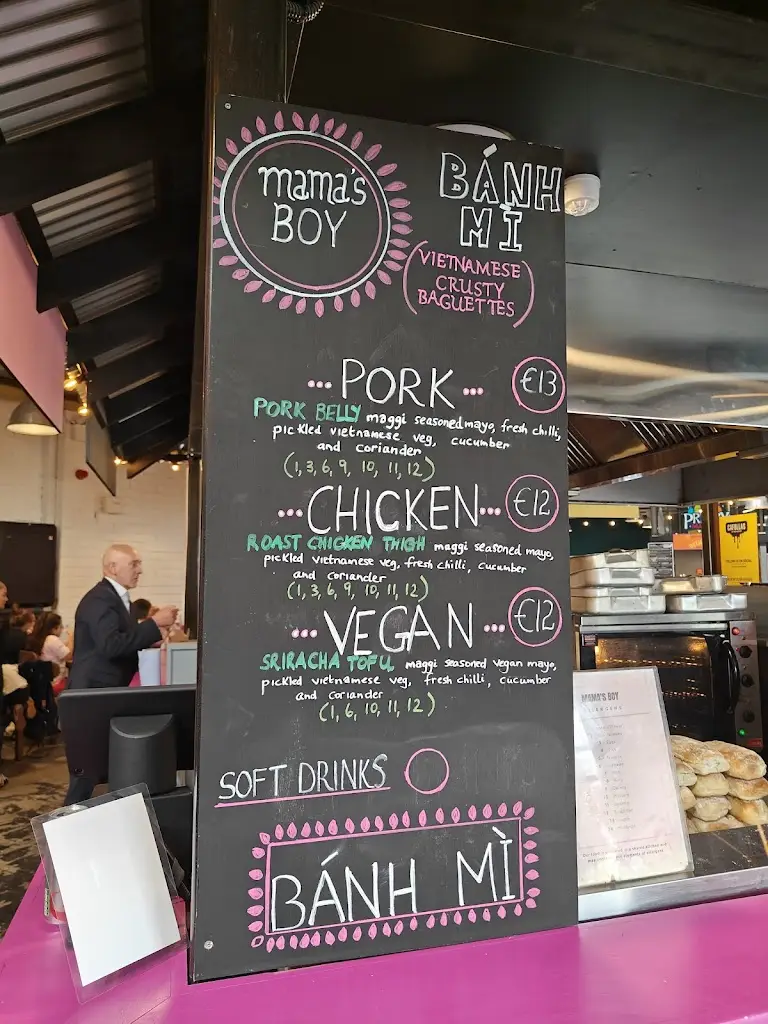 mama's
BOY
BÁNH
MÌ
(VIETNAMESE
CRUSTY
BAGUETTES)
...PORK... €13
PORK BELLY maggi seasoned mayo, fresh chilli,
pickled vietnamese veg, cucumber
and coriander
(1, 3, 6, 9, 10, 11, 12)
...CHICKEN... €12
ROAST CHICKEN THIGH maggi seasoned mayo,
pickled vietnamese veg, fresh chilli, cucumber
and coriander
(1, 3, 6, 9, 10, 11, 12)
...VEGAN... €12
SRIRACHA TOFU, maggi seasoned vegan mayo,
pickled vietnamese veg, fresh chilli, cucumber
and coriander
(1, 6, 10, 11, 12)
SOFT DRINKS
BÁNH MÌ
MAMA'S BOY